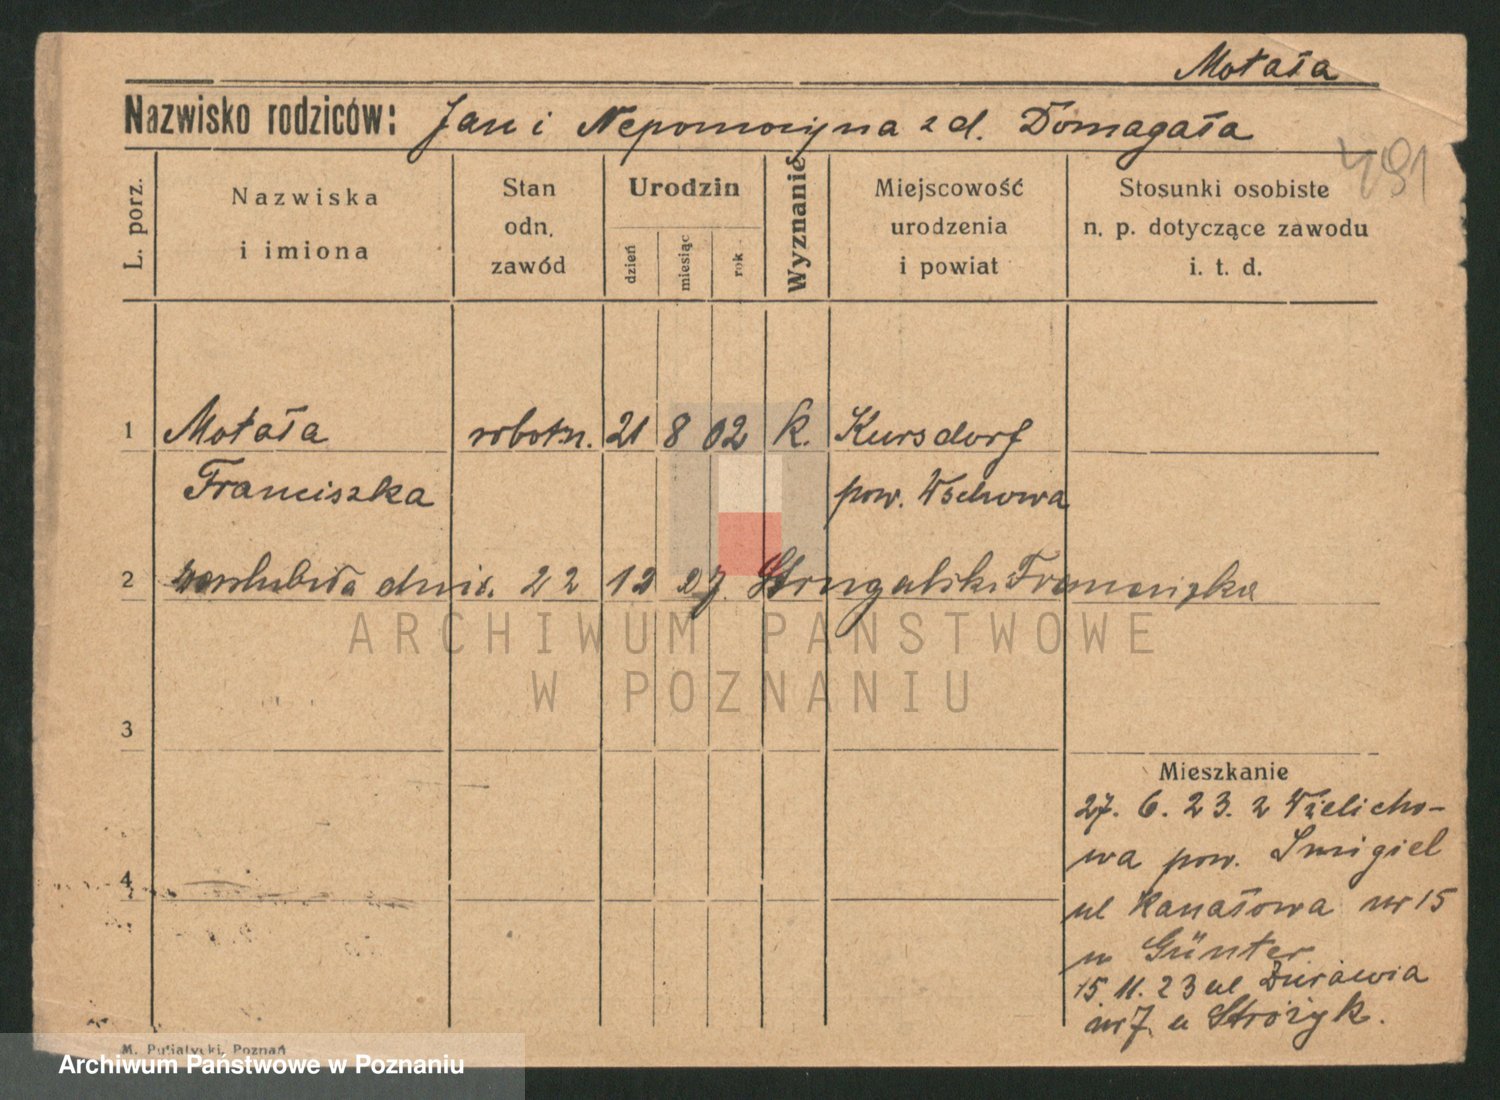 Motała
Nazwisko rodziców: Jan i Nepomocyna z d. Domagała
491
L. porz.
Nazwiska
i imiona
Stan
odn.
zawód
Urodzin
dzień
miesiąc
rok
Wyznanie
Miejscowość
urodzenia
i powiat
Stosunki osobiste
n. p. dotyczące zawodu
i. t. d.
1 Motała robotn. 21 8 02 k. Kursdorf
Franciszka pow. Wschowa
2 dnia. 22 12 27. Strugalski Franciszka
ARCHIWUM PAŃSTWOWE
W POZNANIU
3
Mieszkanie
27. 6. 23. z Wielicho-
wa pow. Smigiel
4
ul Kanałowa nr 15
u Günter
15. 11. 23 ul Żurawia
nr 7. u Stróżyk.
M. Putiatycki, Poznań
Archiwum Państwowe w Poznaniu